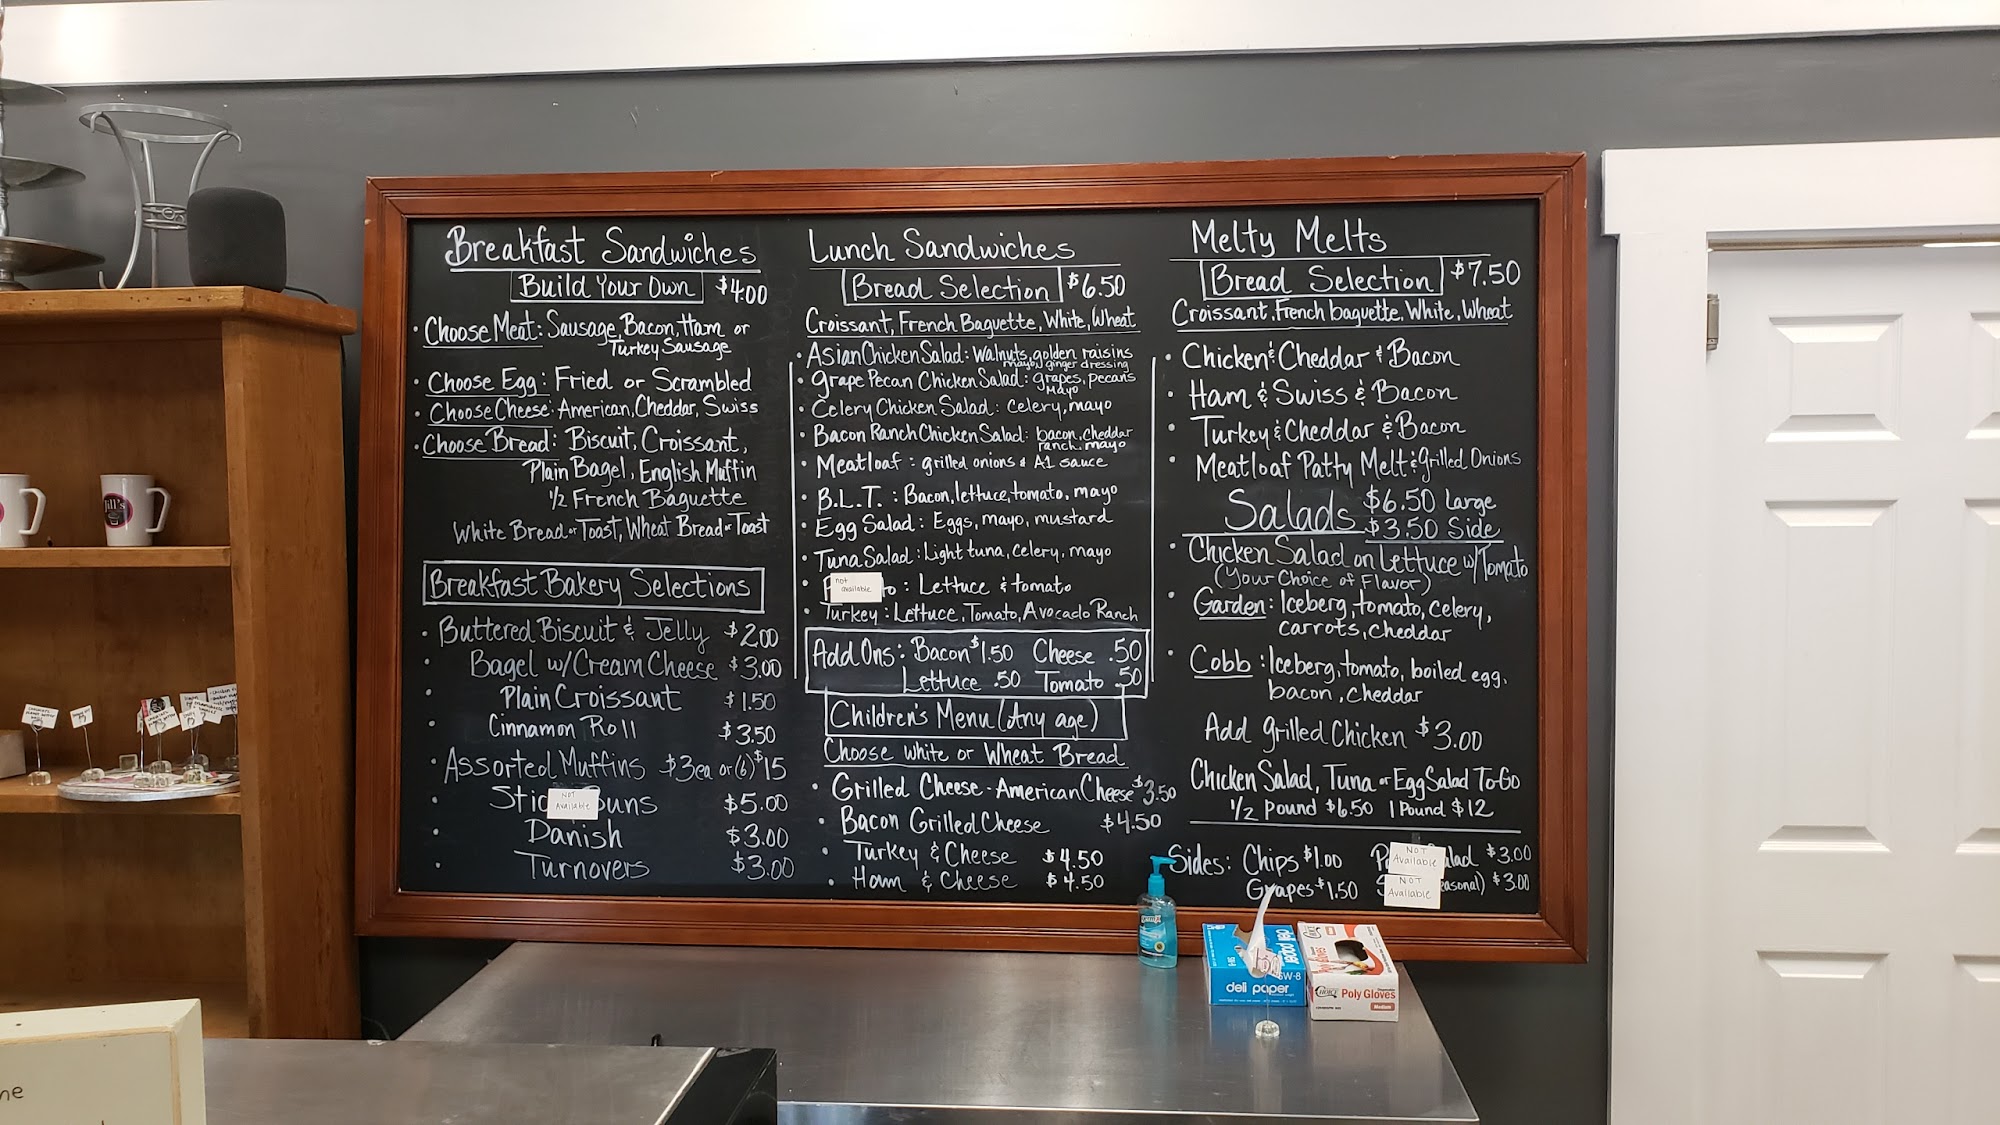 Breakfast Sandwiches
Build Your Own $4.00
• Choose Meat: Sausage, Bacon, Ham or
Turkey Sausage
• Choose Egg: Fried or Scrambled
• Choose Cheese: American, Cheddar, Swiss
• Choose Bread: Biscuit, Croissant,
Plain Bagel, English Muffin
1/2 French Baguette
White Bread or Toast, Wheat Bread or Toast
Breakfast Bakery Selections
• Buttered Biscuit & Jelly $2.00
• Bagel w/Cream Cheese $3.00
• Plain Croissant $1.50
• Cinnamon Roll $3.50
• Assorted Muffins $3ea or (6) $15
• Buns $5.00
NOT
Available
• Danish $3.00
• Turnovers $3.00
Lunch Sandwiches
Bread Selection $6.50
Croissant, French Baguette, White, Wheat
• Asian Chicken Salad: Walnuts, golden raisins
mayo, ginger dressing
• Grape Pecan Chicken Salad: grapes, pecans
mayo
• Celery Chicken Salad: celery, mayo
• Bacon Ranch Chicken Salad: bacon, cheddar
ranch, mayo
• Meatloaf: grilled onions & A1 sauce
• B.L.T.: Bacon, lettuce, tomato, mayo
• Egg Salad: Eggs, mayo, mustard
• Tuna Salad: Light tuna, celery, mayo
• : Lettuce & tomato
not
available
• Turkey: Lettuce, Tomato, Avocado Ranch
Add Ons: Bacon $1.50 Cheese .50
Lettuce .50 Tomato .50
Children's Menu (Any age)
Choose White or Wheat Bread
• Grilled Cheese - American Cheese $3.50
• Bacon Grilled Cheese $4.50
• Turkey & Cheese $4.50
• Ham & Cheese $4.50
Melty Melts
Bread Selection $7.50
Croissant, French baguette, White, Wheat
• Chicken & Cheddar & Bacon
• Ham & Swiss & Bacon
• Turkey & Cheddar & Bacon
• Meatloaf Patty Melt & Grilled Onions
Salads $6.50 Large
$3.50 Side
• Chicken Salad on Lettuce w/Tomato
(Your Choice of Flavor)
• Garden: Iceberg, tomato, celery,
carrots, cheddar
• Cobb: Iceberg, tomato, boiled egg,
bacon, cheddar
Add grilled Chicken $3.00
Chicken Salad, Tuna or Egg Salad To-Go
1/2 Pound $6.50 1 Pound $12
Sides: Chips $1.00 $3.00
NOT
Available
Grapes $1.50 $3.00
NOT
Available
Jill's
deli paper
SW-8
CHOICE
Poly Gloves
Medium